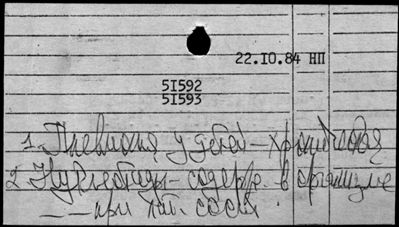 22.IO.84 НП
5I592
5I593
1. Пневмония у детей – хроническая
2 Нуклеотиды – содерж. в организме
— — при пат. сост.